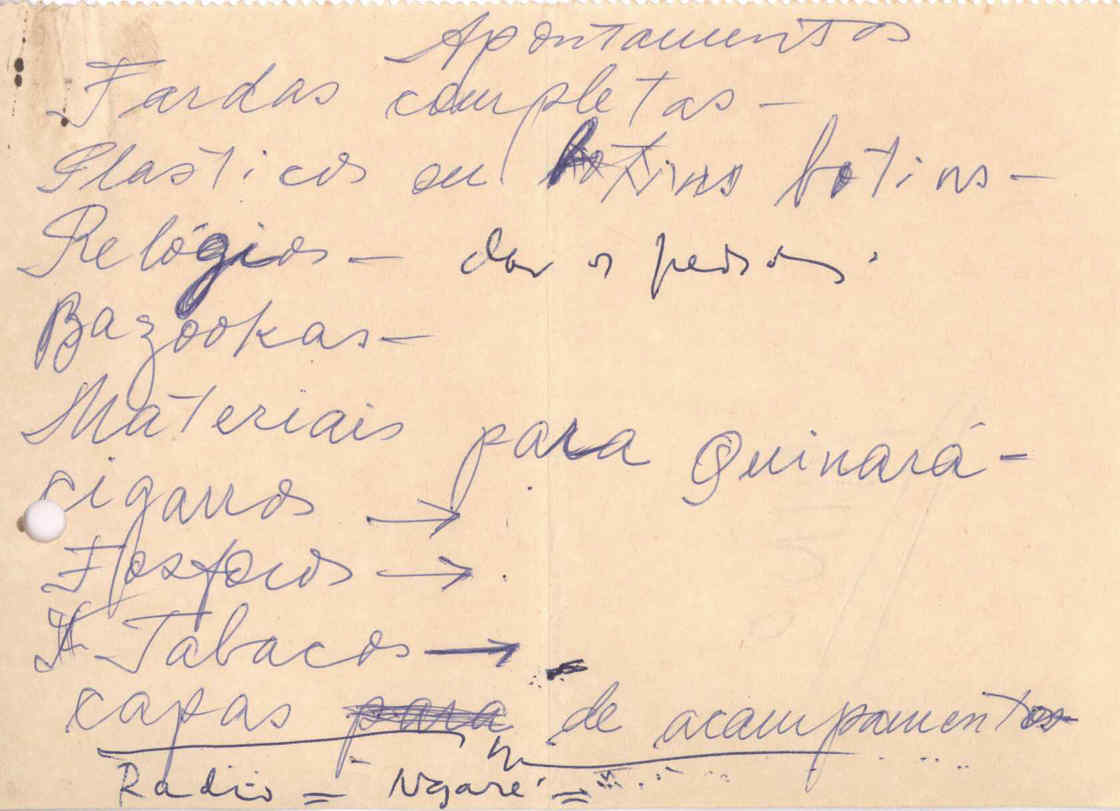 Apontamentos
Fardas completas -
Plasticos ou botins botins -
Relógios - dar os pedidos.
Bazookas -
Materiais para Quinará -
cigarros →
Fosforos →
Tabacos →
capas para de acampamentos
Radio = Ngaré =